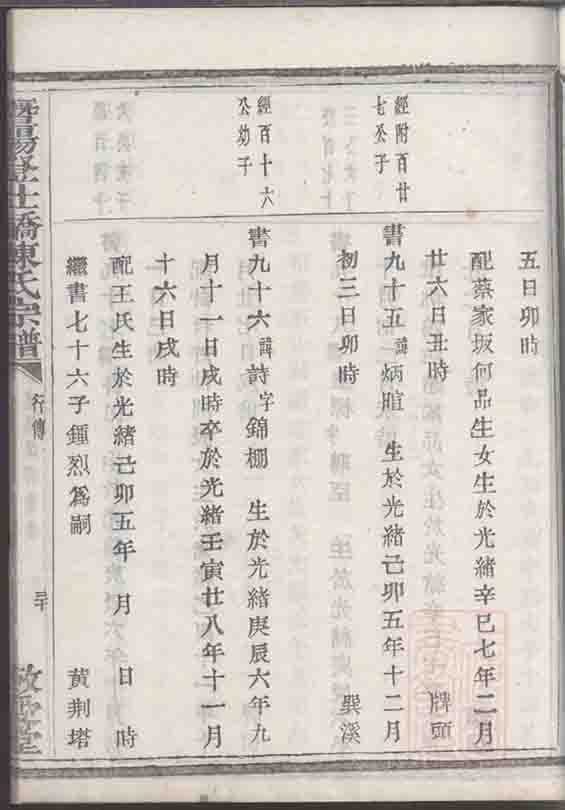 五日卯時
配蔡家坂何品生女生於光緒辛巳七年二月
廿六日丑時 牌頭
經附百廿
七公子
書九十五諱炳暄 生於光緒己卯五年十二月
初三日卯時 巽溪
經百十六
公幼子
書九十六諱詩字錦棚 生於光緒庚辰六年九
月十一日戌時卒於光緒壬寅廿八年十一月
十六日戌時
配王氏生於光緒己卯五年 月 日 時
繼書七十六子鍾烈爲嗣 黃荆塔
暨陽登仕橋陳氏宗譜
行傳